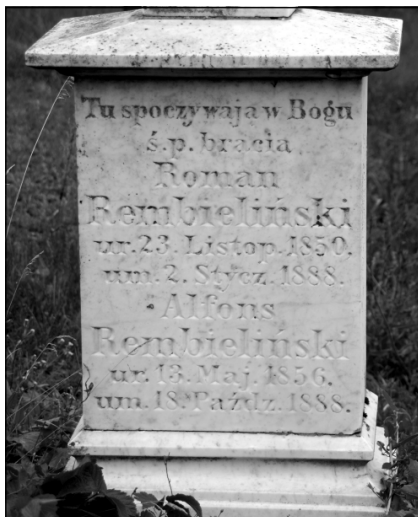 Tu spoczywają w Bogu
ś.p. bracia
Roman
Rembieliński
ur. 23. Listop. 1850.
um. 2. Stycz. 1888.
Alfons
Rembieliński
ur. 13. Maj. 1856.
um. 18. Paźdz. 1888.